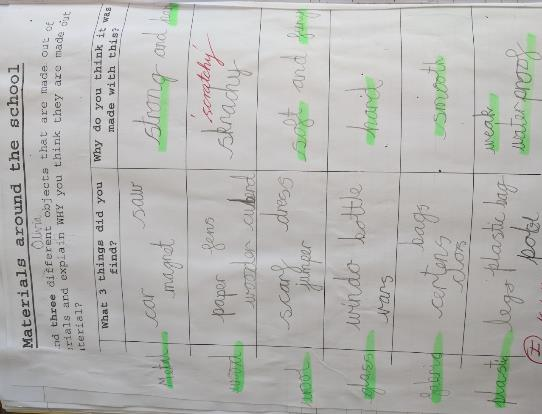 Materials around the school
Olivia
nd three different objects that are made out of
rials and explain WHY you think they are made out
terial?
What 3 things did you find?
Why do you think it was made with this?
Metal
car saw
magnet
strong and
wood
paper fens
wooden
'scratchy'
skrachy
wool
scarf dress
jumper
soft and
glass
windo bottle
vars
hard
fabric
certens bags
smooth
plastic
lego plastic bag
weak
waterproof